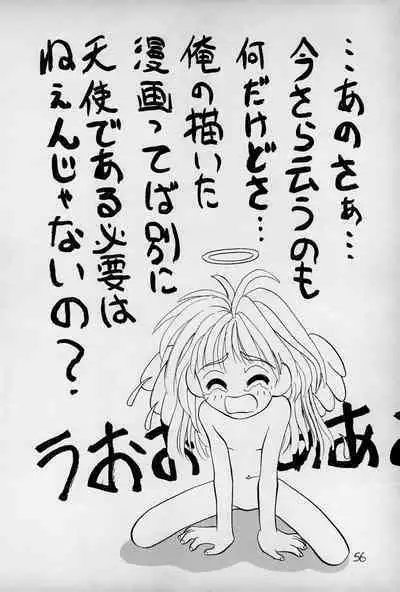 …あのさぁ…
今さら云うのも
何だけどさ…
俺の描いた
漫画ってば別に
天使である必要は
ねぇんじゃないの？
うおお
あああ
56